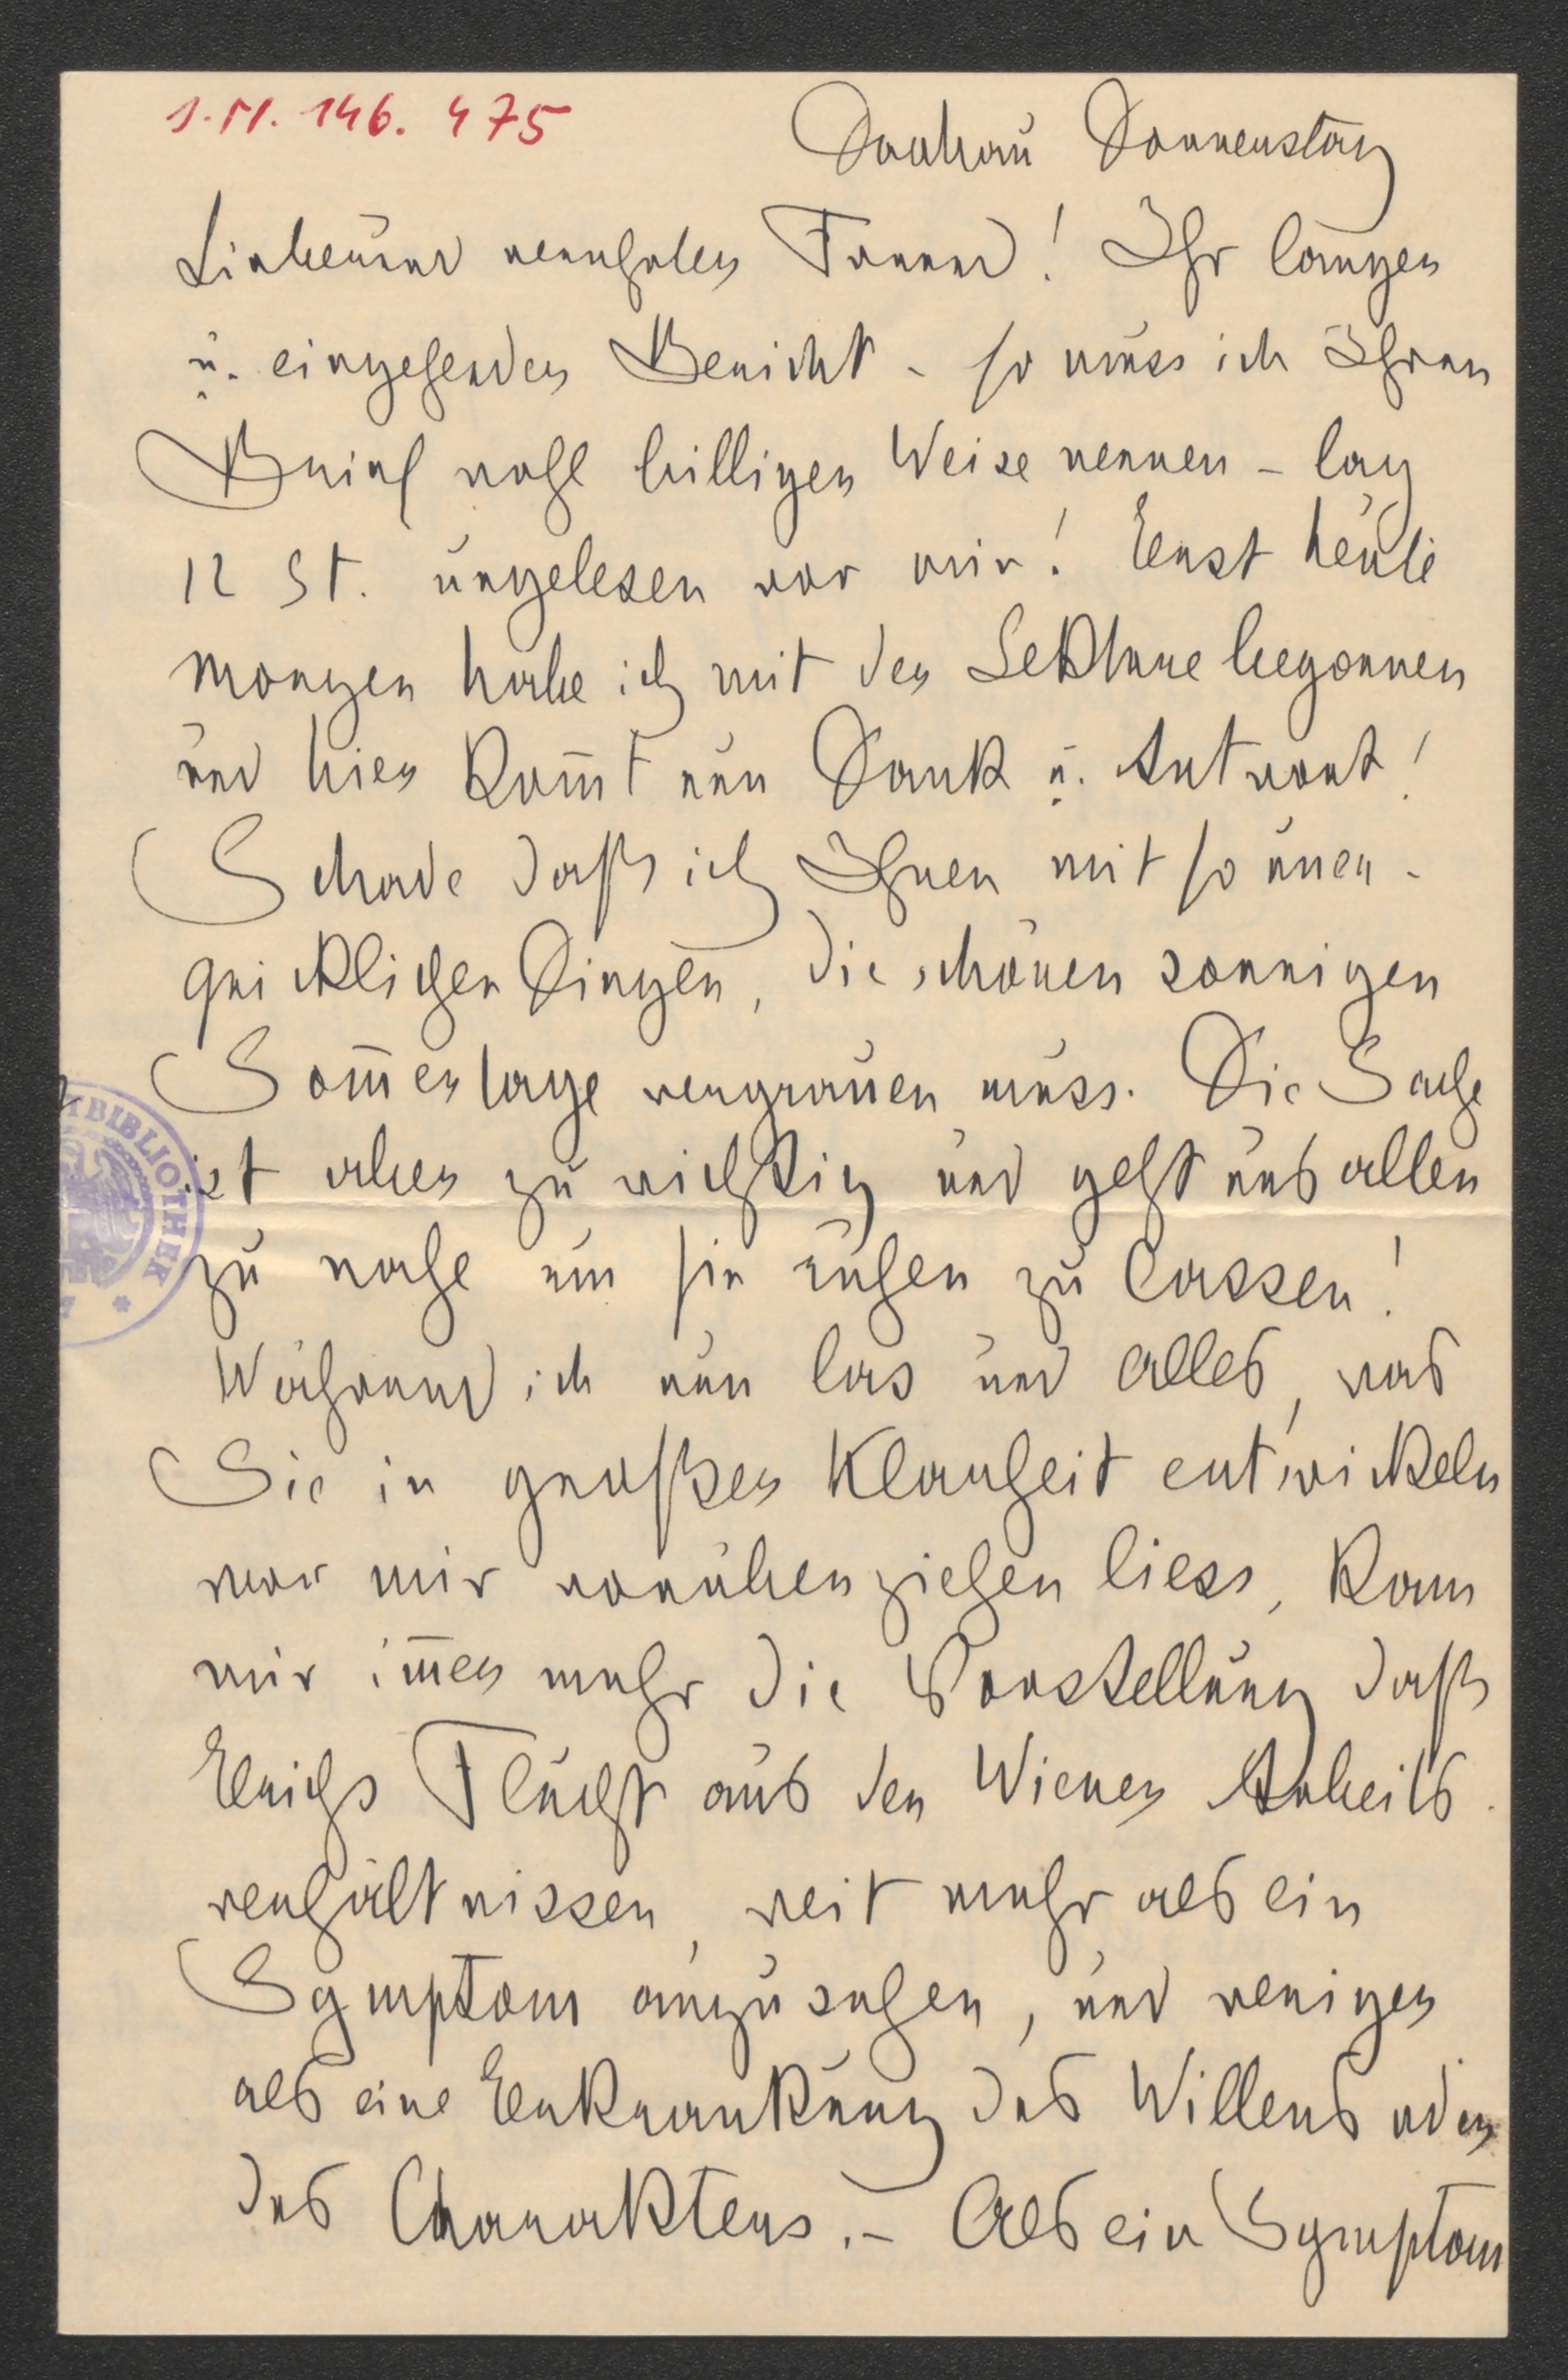 I.N. 146.475
Dachau Donnerstag
Lieber und verehrter Freund! Ihr langer
u. eingehender Bericht - so muss ich Ihren
Brief wohl billiger Weise nennen - lag
12 St. ungelesen vor mir! Erst heute
morgen habe ich mit der Lektüre begonnen
und hier kom̄t nun Dank u. Antwort!
Schade daß ich Ihnen mit so uner-
quicklichen Dingen, die schönen sonnigen
Som̄ertage vergrauen muss. Die Sache
ist aber zu wichtig und geht uns allen
zu nahe um sie ruhen zu lassen!
Während ich nun las und alles, was
Sie in großer Klarheit entwickeln
vor mir vorüberziehen liess, kam
mir im̄er mehr die Vorstellung daß
Erichs Flucht aus den Wiener Arbeits-
verhältnissen, weit mehr als ein
Symptom anzusehen, und weniger
als eine Erkrankung des Willens oder
des Charakters. - Als ein Symptom
BIBLIOTHEK